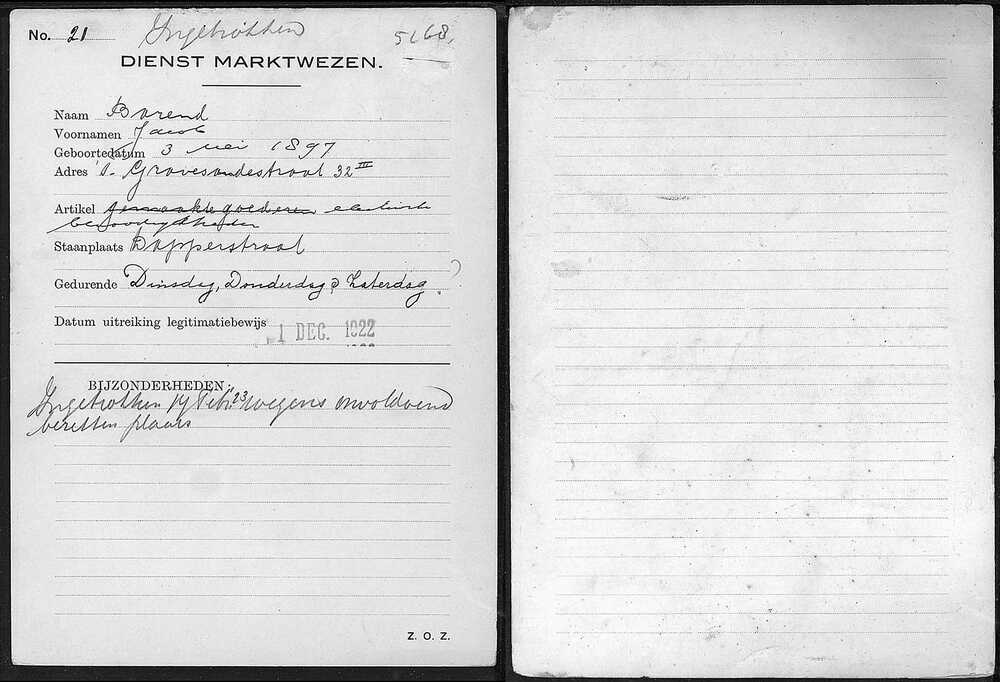 No. 21 Ingetrokken 5168.
DIENST MARKTWEZEN.
Naam Barend
Voornamen Jacob
Geboortedatum 3 mei 1897
Adres 's- Gravesandestraat 32 III
Artikel gemaakte goederen electrische
benoodigdheden
Staanplaats Dapperstraat
Gedurende Dinsdag, Donderdag & Zaterdag.
Datum uitreiking legitimatiebewijs
1 DEC. 1922
BIJZONDERHEDEN:
Ingetrokken 19 Feb. '23 wegens onvoldoend
bezetten plaats
Z. O. Z.